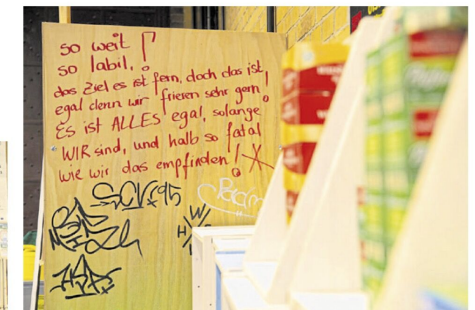 so weit!
so labil,!
das Ziel es ist fern, doch das ist
egal denn wir frieren sehr gern!
Es ist ALLES egal, solange
WIR sind, und halb so fatal
wie wir das empfinden!
SCV 95